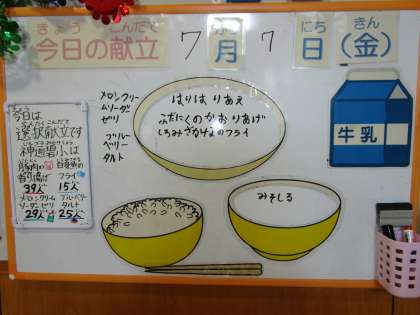 きょう こんだて
今日の献立
7 がつ 月 7 にち 日 きん (金)
メロンクリー
ムソーダ
ゼリー
ブルー
ベリー
タルト
はりはりあえ
ぶたにくのかおりあげ
しろみざかなのフライ
牛乳
みそしる
今日は
選択献立です
神道碧小は
豚肉の
香り揚げ
39人
白身魚の
フライ
15人
メロンクリーム
ソーダゼリー
29人
ブルーベリー
タルト
25人